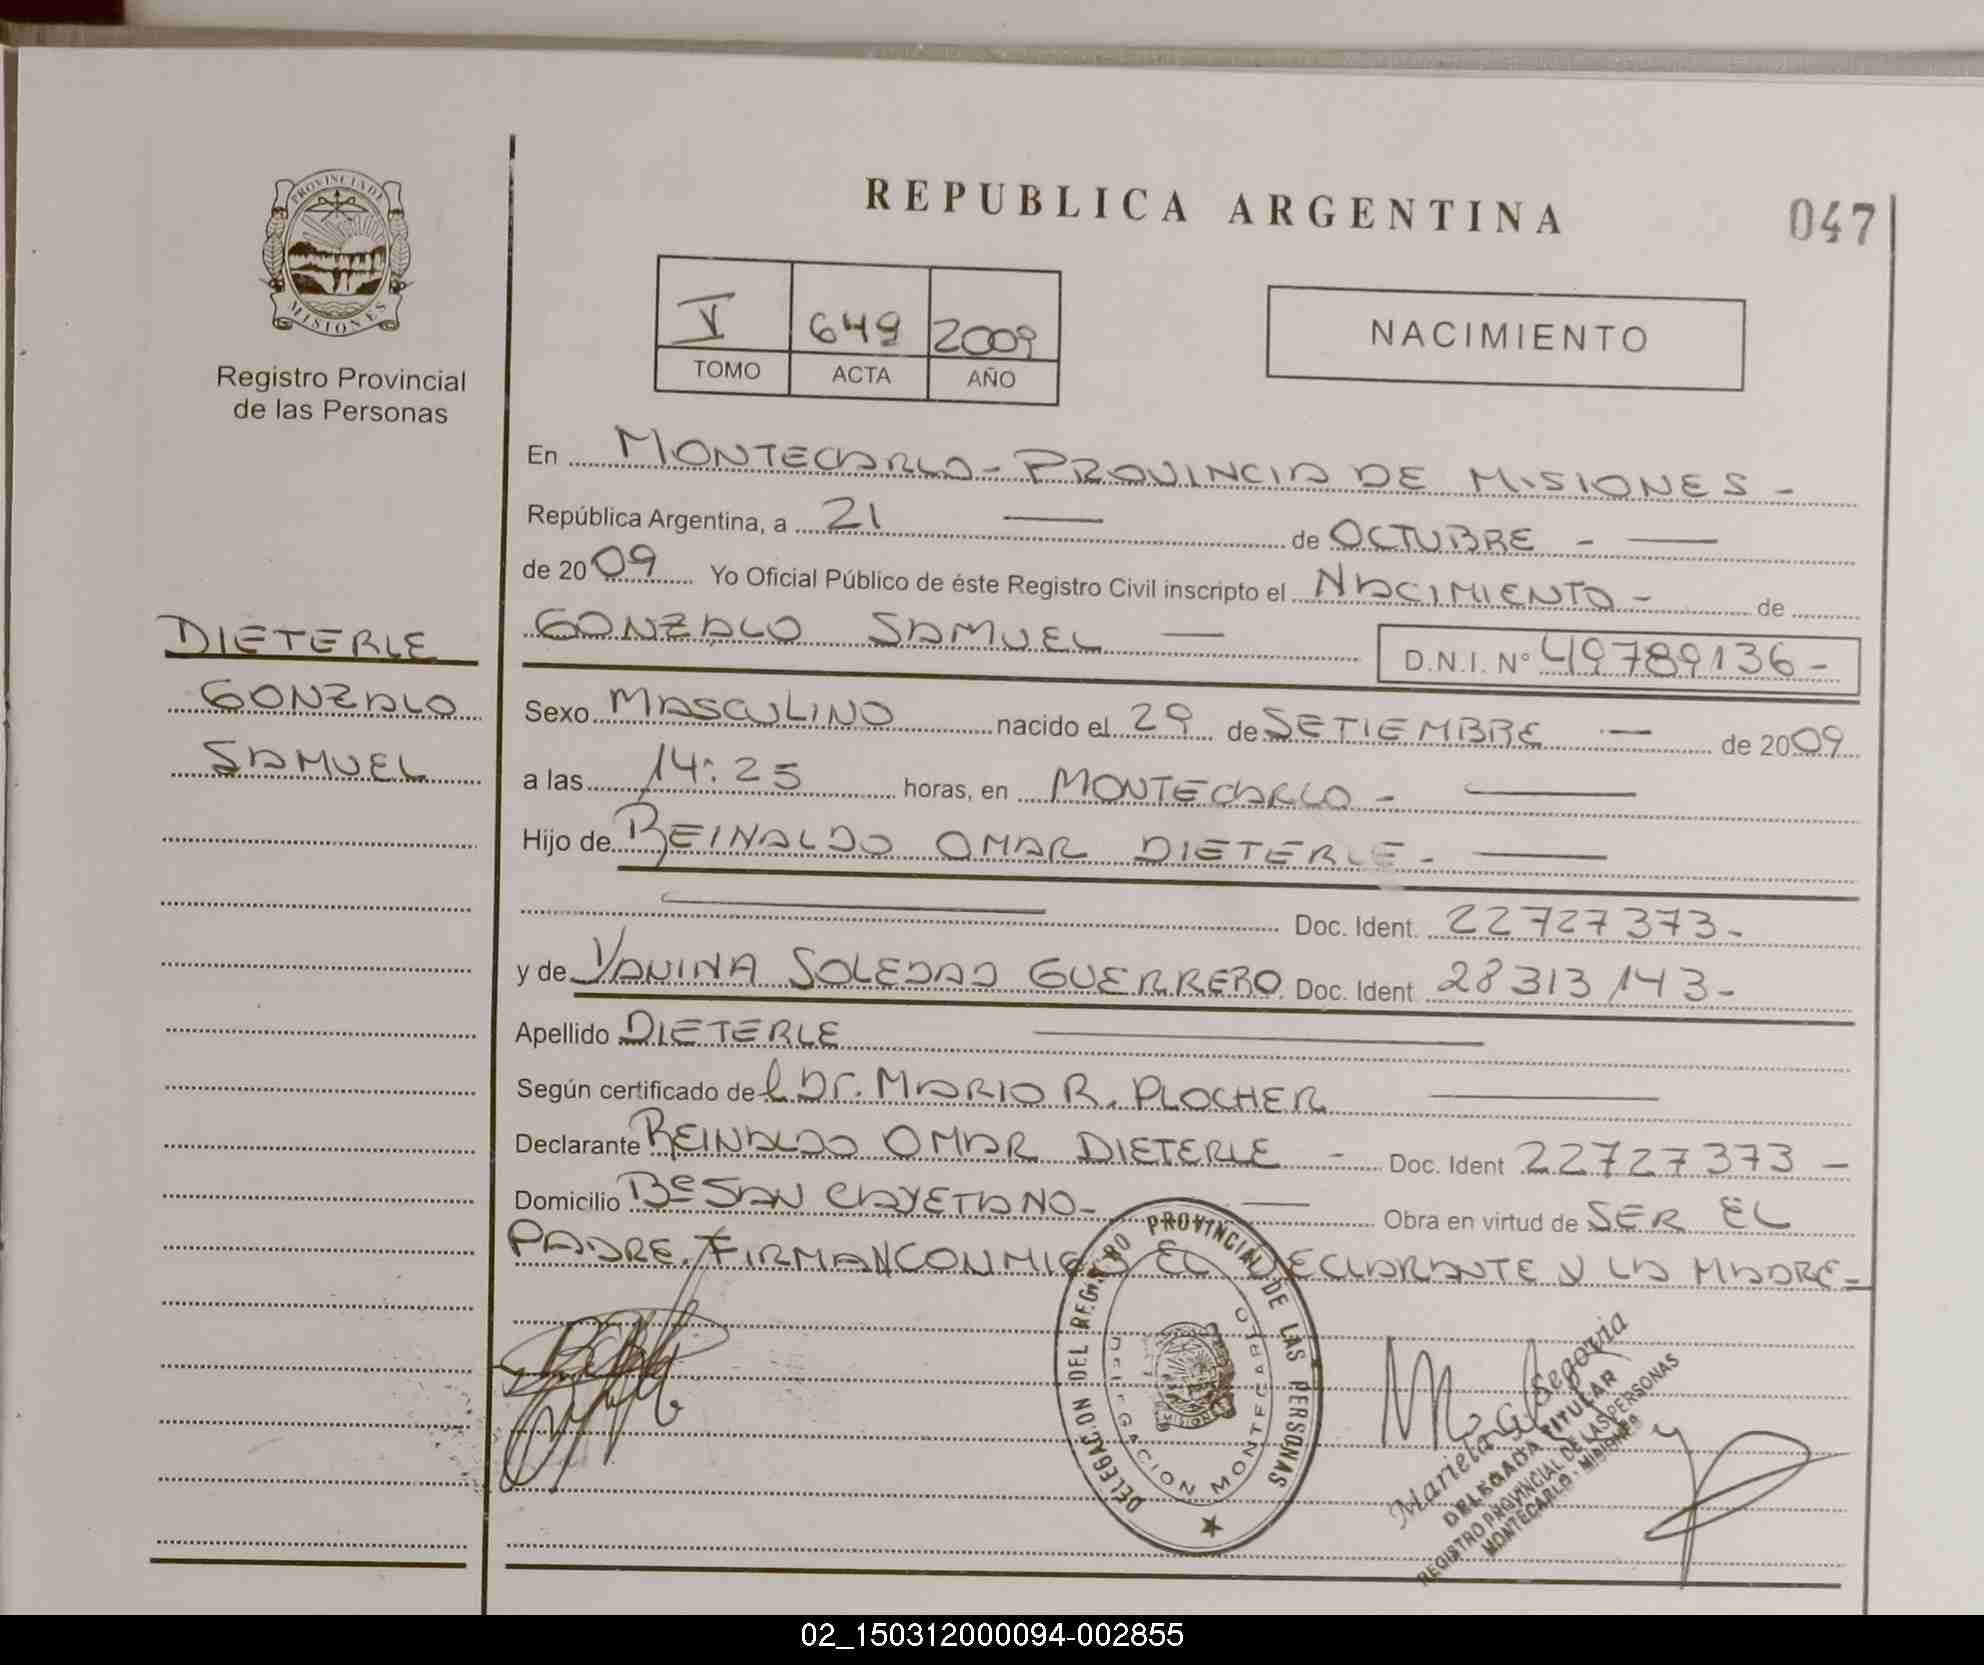 PROVINCIA DE
MISIONES
Registro Provincial
de las Personas
DIETERLE
GONZALO
SAMUEL
REPUBLICA ARGENTINA
047
V 649 2009
TOMO ACTA AÑO
NACIMIENTO
En MONTECARLO - PROVINCIA DE MISIONES -
República Argentina, a 21 de OCTUBRE -
de 2009 Yo Oficial Público de éste Registro Civil inscripto el NACIMIENTO - de
GONZALO SAMUEL D.N.I. Nº 49789136-
Sexo MASCULINO nacido el 29 de SETIEMBRE de 2009
a las 14:25 horas, en MONTECARLO -
Hijo de REINALDO OMAR DIETERLE -
Doc. Ident. 22727373-
y de YANINA SOLEDAD GUERRERO Doc. Ident 28313143-
Apellido DIETERLE
Según certificado del Dr. MARIO R. PLOCHER
Declarante REINALDO OMAR DIETERLE - Doc. Ident 22727373 -
Domicilio Bº SAN CAYETANO - Obra en virtud de SER EL
PADRE. FIRMAN CONMIGO EL DECLARANTE Y LA MADRE -
DELEGACION DEL REGISTRO PROVINCIAL DE LAS PERSONAS
DELEGACION MONTECARLO
MISIONES
Mariela G. Segovia
DELEGADA TITULAR
REGISTRO PROVINCIAL DE LAS PERSONAS
MONTECARLO - MISIONES
02_150312000094-002855